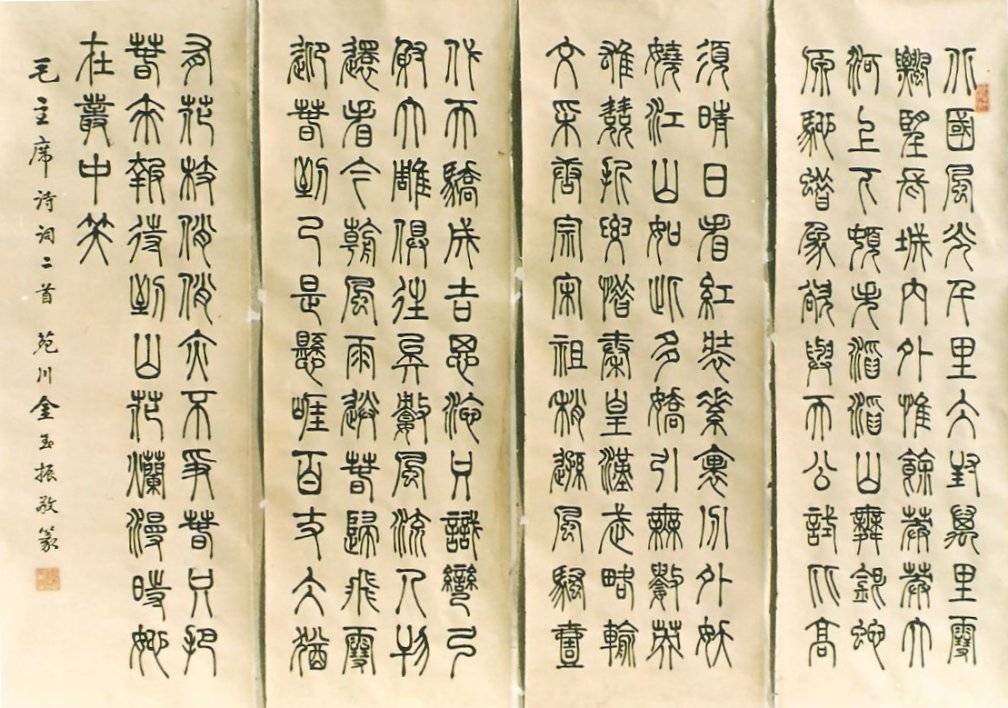 北國風光千里冰封萬里雪
飄望長城內外惟餘莽莽大
河上下頓失滔滔山舞銀蛇
原馳蜡象欲與天公試比高
須晴日看紅裝素裹分外妖
嬈江山如此多嬌引無數英
雄競折腰惜秦皇漢武略輸
文采唐宗宋祖稍遜風騷壹
代天驕成吉思汗只識彎弓
射大雕俱往矣數風流人物
還看今朝風雨送春歸飛雪
迎春到已是懸崖百丈冰猶
有花枝俏俏亦不爭春只把
春來報待到山花爛漫時她
在叢中笑
毛主席诗词二首 苑川金玉振敬篆